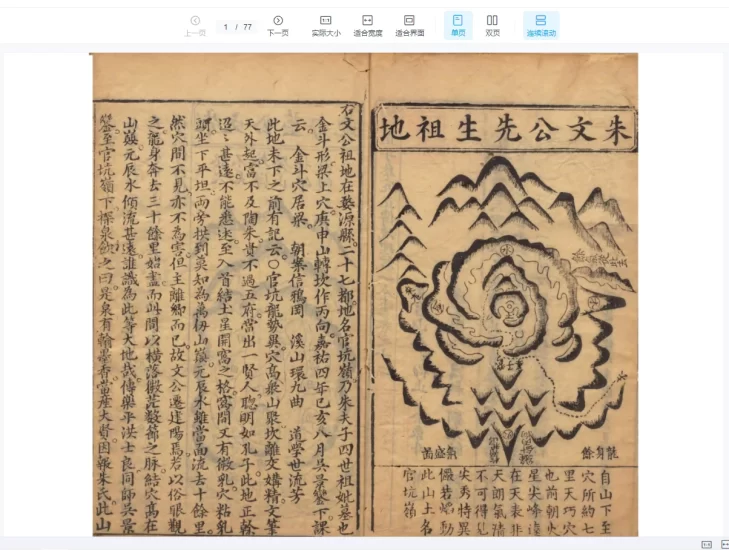 上一页
1 / 77
下一页
实际大小
适合宽度
适合界面
单页
双页
连续滚动
朱文公先生祖地
自山下至
穴所約七
里天巧穴
也前朝火
星尖峰遠
在天表非
天朗氣清
不可得見
尖秀特異
儼若焰動
此山土名
官坑嶺
右文公祖地在婺源縣二十七都地名官坑嶺乃朱夫子四世祖妣墓也
金斗形梁上穴庚申山轉坎作丙向嘉祐四年己亥八月吳景鸞下課
云 金斗穴居梁 朝案信鴉岡 溪山環九曲 道學世流芳
此地未下之前有記云○官坑龍勢異穴高衆山聚坎離交媾精文筆
天外起富不及陶朱貴不過五府當出一賢人聰明如孔子此地正幹
迢〻甚遠不能悉述至入首結土星開窩之格窩間又有微乳穴粘乳
頭坐下平坦両旁拱到莫知為萬仞山巔元辰水雖當面流去十餘里
然穴間不見亦不為害但主離鄉而已故文公遷建陽焉若以俗眼觀
之龍身奔去三十餘里始盡而此間以橫落微茫數節之脉結穴高在
山巔元辰水傾流甚遠誰識為此等大地哉傳樂平洪士良同師吳景
鸞至官坑嶺下掬泉飲之曰是泉有翰墨香當產大貴因報朱氏此山